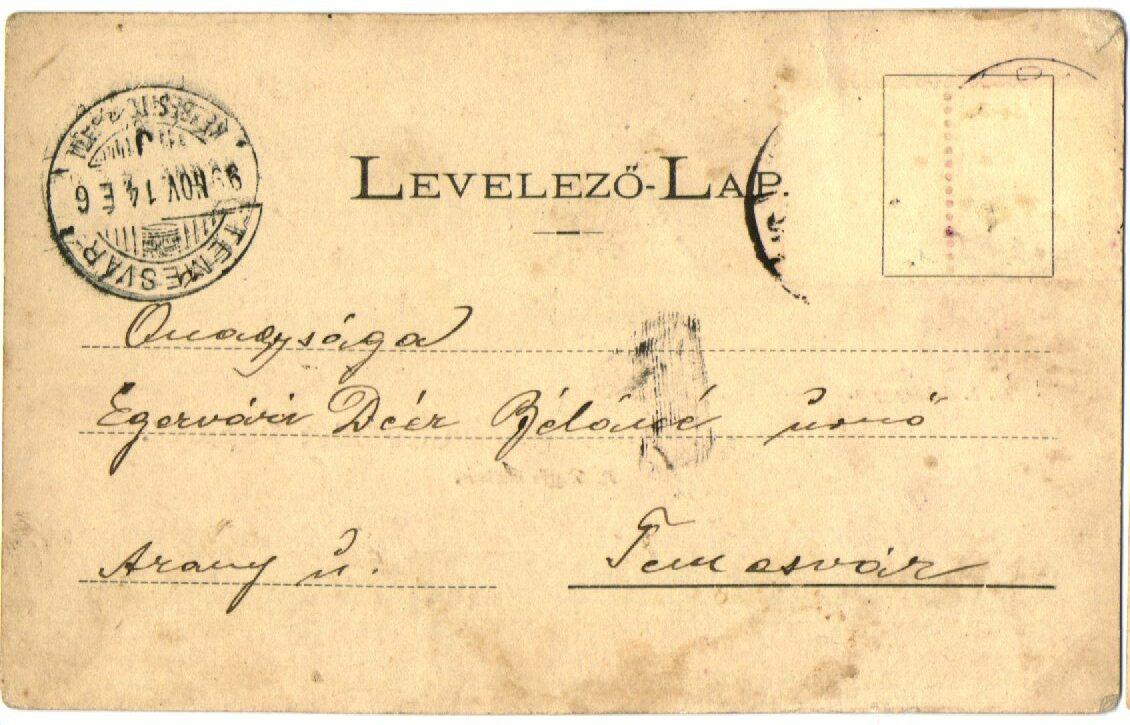 LEVELEZŐ-LAP
TEMESVÁR
99 NOV. 14 É 6
Őnagysága
Egervári Deér Béláné úrnő
Arany u.
Temesvár